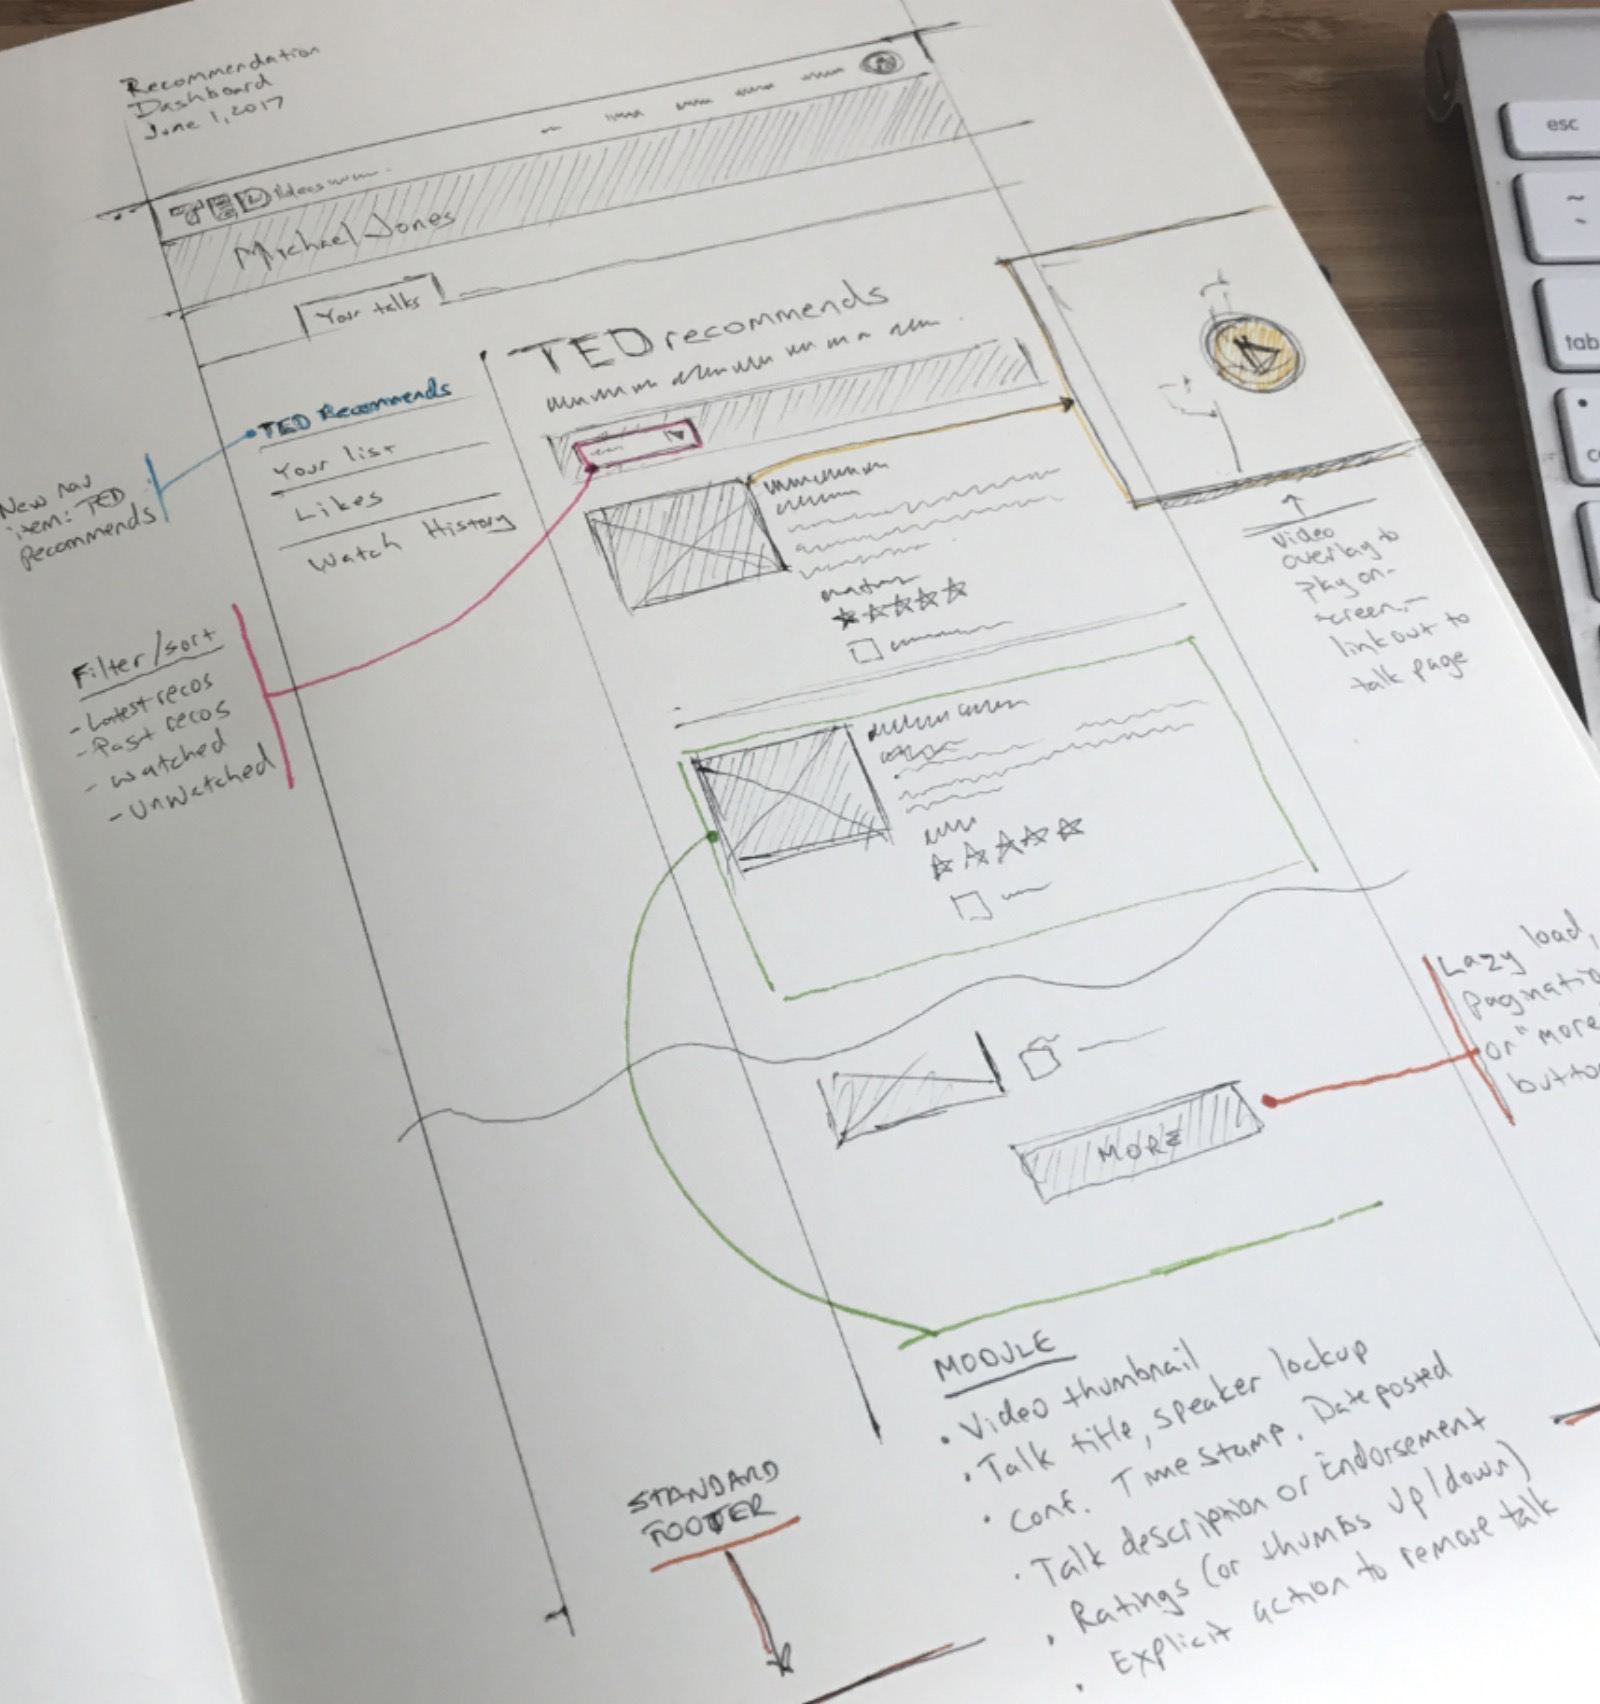 Recommendation
Dashboard
June 1, 2017
TED Ideas
Michael Jones
Your talks
TED recommends
TED Recommends
Your list
Likes
Watch History
New nav
item: TED
Recommends
Filter/sort
- Latest recos
- Past recos
- watched
- unwatched
video
overlay to
play on-
screen,-
link out to
talk page
Lazy load,
paginatio
or "more
butto
MORE
MODULE
• Video thumbnail
• Talk title, speaker lockup
• Conf. Time stamp. Date posted
• Talk description or Endorsement
• Ratings (or thumbs up/down)
• Explicit action to remove talk
STANDARD
FOOTER
esc
~
`
tab